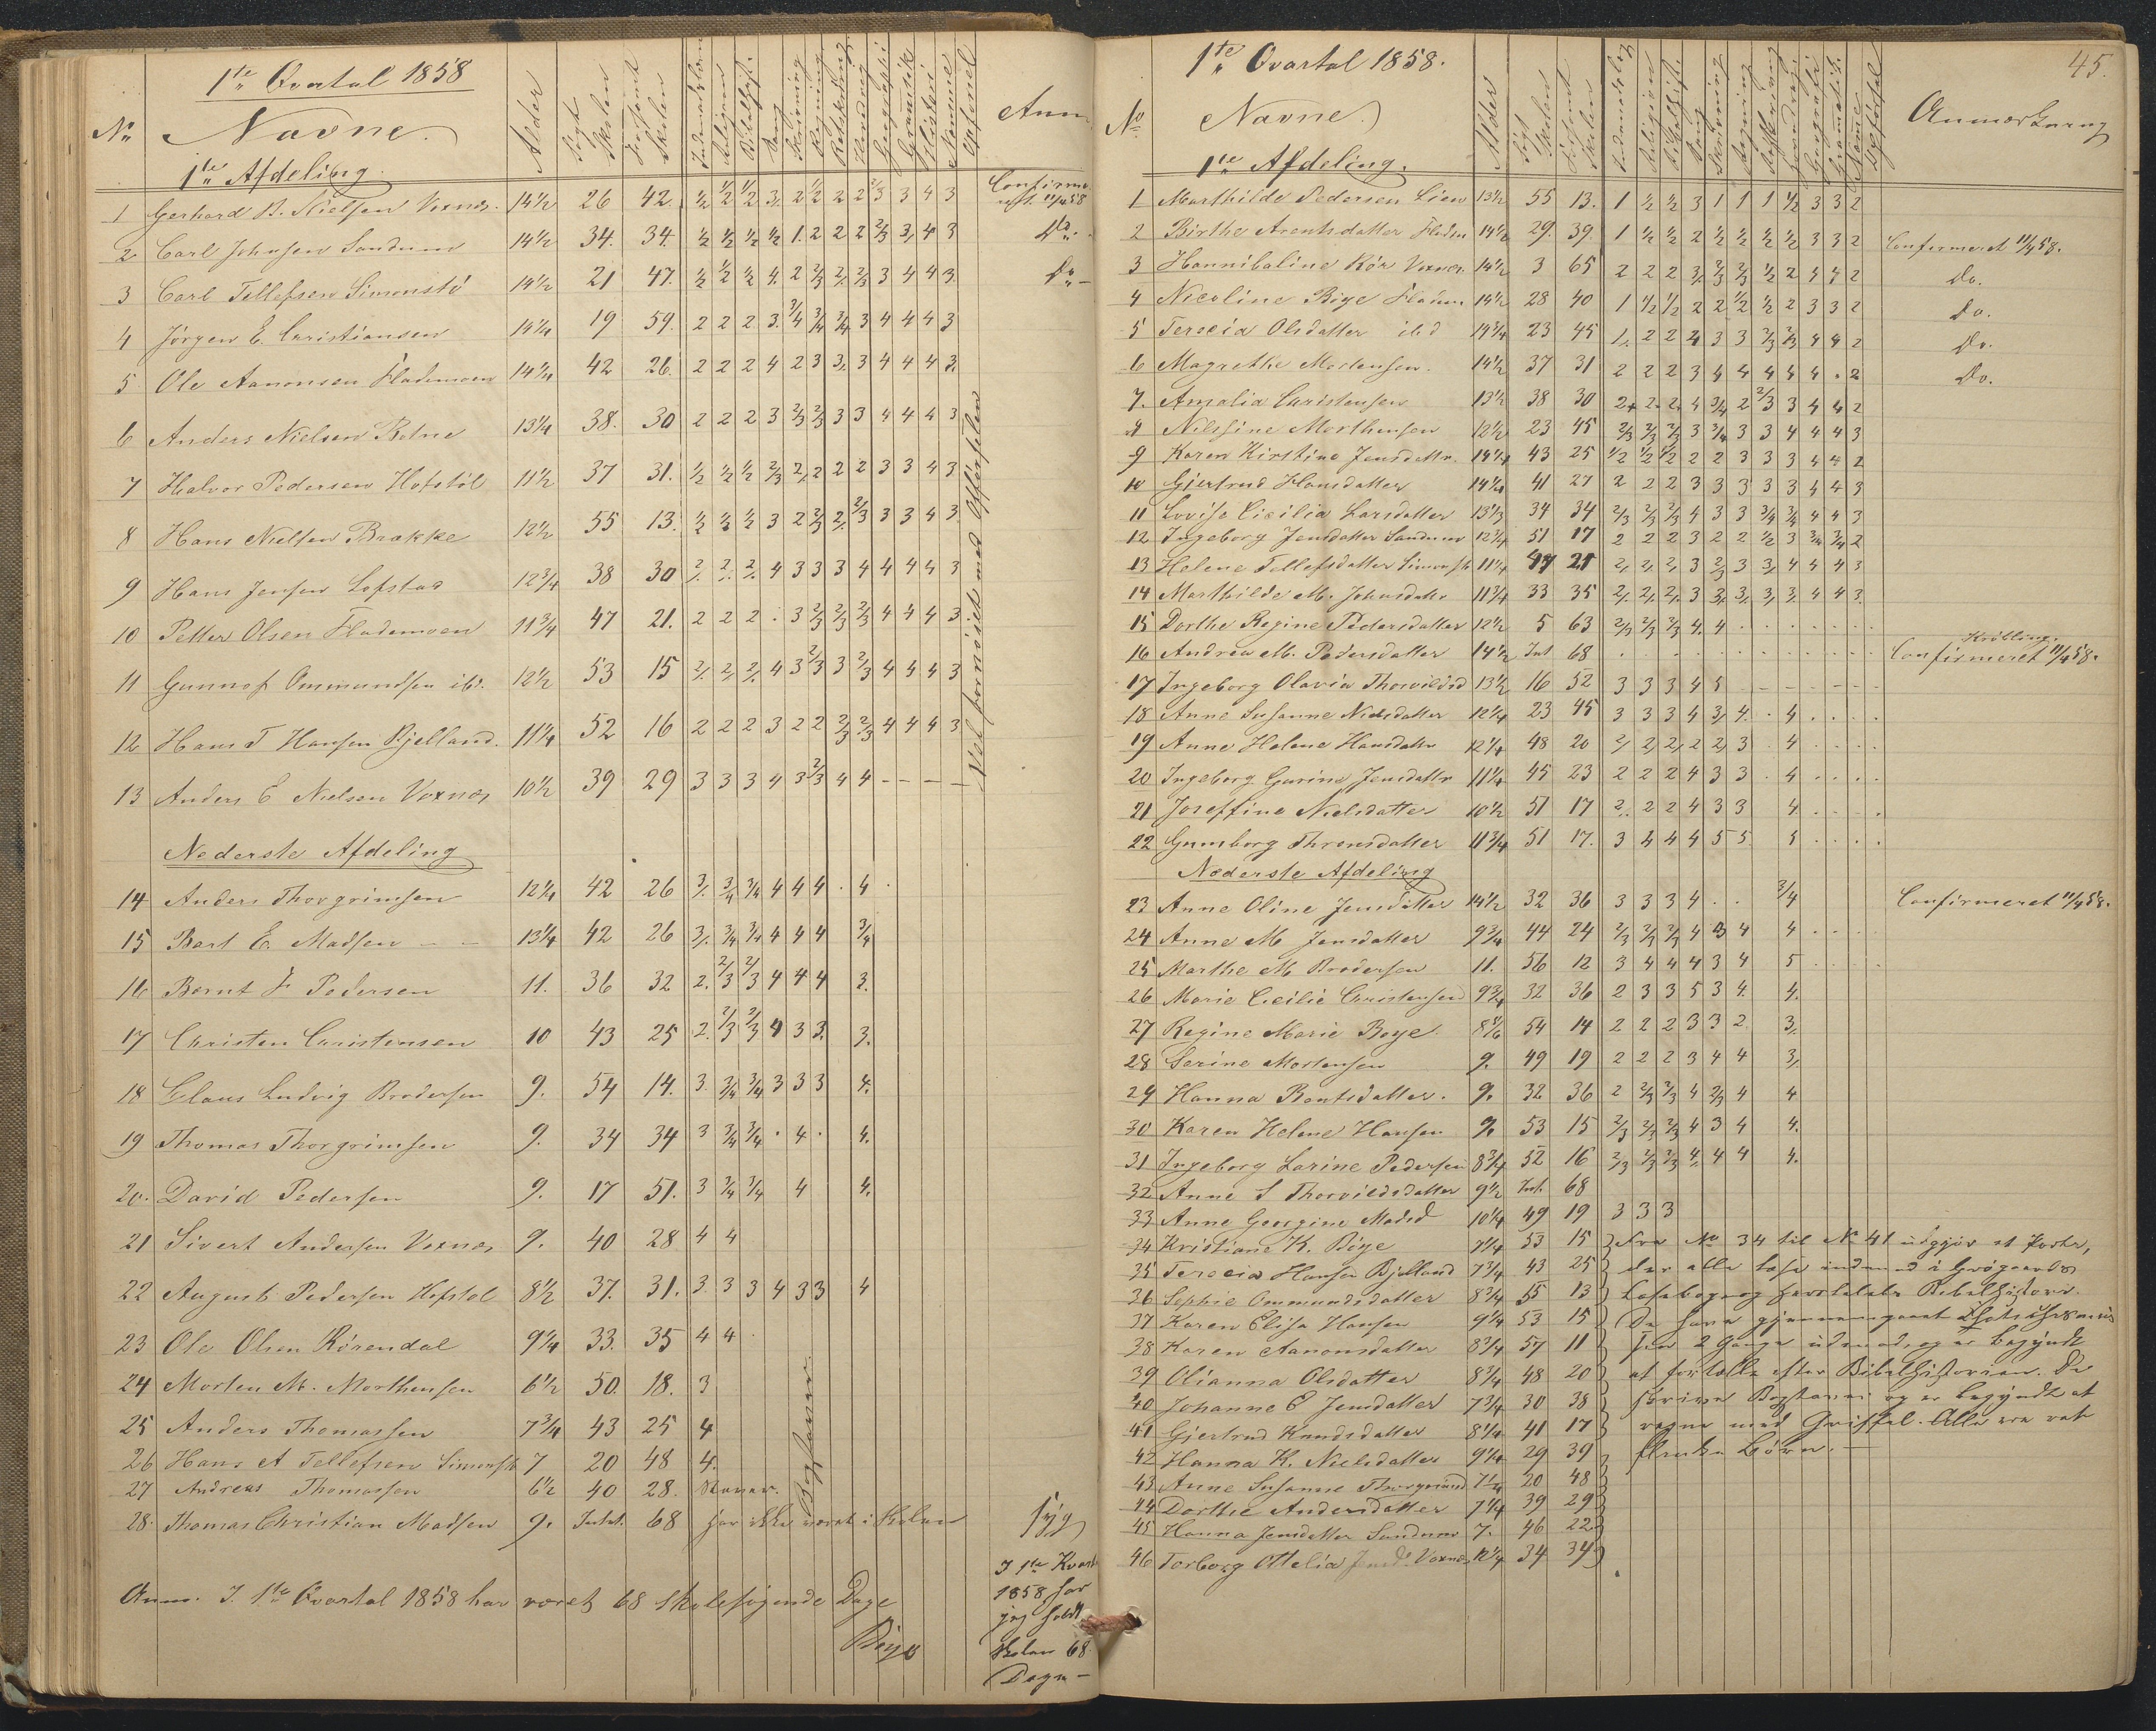 1te Qvartal 1858
No Navne. Alder Søgt Skolen Forsømt Skolen Religion Sang Skrivning Regning Historie Anm
1te Afdeling.
1 Gerhard B. Nielsen Voxnæs. 14½ 26 42 ½ ½ ½ 3 2 ½ 2 2 2/3 3 4 3
2 Carl Johnsen Sandum 14½ 34. 34. ½ ½ ½ ½ 1. 2 2 2 2/3 3 4 3 Do.
3 Carl Tellefsen Simonstö 14½ 21 47. ½ ½ ½ 4 2 2/3 2 2/3 3 4 4 3. Do
4 Jörgen E. Christiansen 14¼ 19 59. 2 2 2 3. 3/4 3/4 3/4 3 4 4 4 3
5 Ole Aanonsen Flademoen 14¼ 42 26. 2 2 2 4 2 3 3 3 4 4 4 3.
6 Anders Nielsen Botne 13¼ 38. 30 2 2 2 3 2/3 2/3 3 3 4 4 4 3
7 Halvor Pedersen Hofstöl 11½ 37 31. ½ ½ ½ 2/3 2 2 2 2 3 3 4 3
8 Hans Nielsen Brække 12½ 55 13. ½ ½ ½ 3 2 2/3 2 2/3 3 3 4 3
9 Hans Jensen Lofstad 12¾ 38 30 2 2 2 4 3 3 3 4 4 4 4 3
10 Petter Olsen Flademoen 11¾ 47 21. 2 2 2 . 3 2/3 2/3 2/3 4 4 4 3
11 Gunnof Ommundsen ibd. 12½ 53 15 2 2 2 4 3 2/3 3 2/3 4 4 4 3
12 Hans T Hansen Bjelland. 11¼ 52 16 2 2 2 3 2 2 2/3 2/3 4 4 4 3
13 Anders E Nielsen Voxnæs 10½ 39 29 3 3 3 4 3 2/3 4 4 – – – –
Vel fornøiet med Opførselen
Nederste Afdeling
14 Anders Thorgrimsen 12¼ 42 26 3 3/4 3/4 4 4 4 . 4 .
15 Bart E. Madsen – – 13¼ 42 26 3 3/4 3/4 4 4 4 3/4
16 Bernt J Pedersen 11. 36 32 2. 2/3 2/3 4 4 4 3.
17 Christen Christensen 10 43 25 2. 2/3 2/3 4 3 3. 3.
18 Claus Ludvig Brodersen 9. 54 14. 3. 3/4 3/4 3 3 3 4.
19 Thomas Thorgrimsen 9. 34 34 3 3/4 3/4 . 4 . 4.
20. David Pedersen 9. 17 51. 3 3/4 3/4 4 4.
21 Sivert Andersen Voxnæs 9. 40 28 4 4
22 August Pedersen Hofstøl 8½ 37. 31. 3. 3 3 4 3 3 4
23 Ole Olsen Rörendal 9¼ 33. 35 4 4 .
24 Morten M. Morthensen 6½ 50. 18. 3
25 Anders Thomassen 7¾ 43 25 4
26 Hans A Tellefsen Simonstö 7 20 48 4.
27 Andreas Thomassen 6½ 40 28. Staver.
28. Thomas Christian Madsen 9. Intet. 68 har ikke været i Skolen Syg
Bogstaver.
Anm. I 1te Qvartal 1858 har været 68 skolesøgende Dage
Böye
I 1te Kvart
1858 har
jeg holdt
Skolen 68
Dage –
45.
1te Qvartal 1858.
No Navne. Alder Søgt Skolen Forsømt Skolen Religion Sang Skrivning Regning Anmærkning
1te Afdeling.
1 Marthilde Pedersen Lien 13½ 55 13. 1 ½ ½ 3 1 1 1 ½ 3 3 2
2 Birthe Arentsdatter 14½ 29. 39. 1 ½ ½ 2 ½ ½ ½ ½ 3 3 2 Confirmeret 11/4 58.
3 Hannibaline Rör Voxnæs. 14½ 3 65 2 2 2 3 2/3 2/3 ½ 2 4 4 2 Do.
4 Nicoline Böye 14½ 28 40 1 ½ ½ 2 2 ½ ½ 2 3 3 2 Do.
5 Terecia Olsdatter ibd 14¾ 23 45 1. 2 2 4 3 3 2/3 2/3 4 4 2 Do.
6 Magrethe Mortensen. 14½ 37 31 2 2 2 3 4 4 4 4 4 . 2 Do.
7. Amalia Christensen 13½ 38 30 2 2 2 4 3/4 2 2/3 3 4 4 2
8 Nilssine Morthensen 12½ 23 45 2/3 2/3 2/3 3 3/4 3 3 4 4 4 3
9 Karen Kirstine Jensdattr. 14¼ 43 25 ½ ½ ½ 2 2 3 3 3 4 4 2
10 Gjertrud Hansdatter 14¼ 41 27 2 2 2 3 3 3 3 3 4 4 3
11 Lovise Cicilia Larsdatter 13⅓ 34 34 2/3 2/3 2/3 4 3 3 3/4 3/4 4 4 3
12 Ingeborg Jensdatter Sandum 12¾ 51 17 2 2 2 3 2 2 ½ 3 3/4 3/4 2
13 Helene Tellefsdatter Simonstö 11¼ 47 21 2 2 2 3 2/3 3 3 4 4 4 3
14 Marthilde M. Johnsdattr 11¾ 33 35 2 2 2 3 3 3 3 3 4 4 3
15 Dorthe Regine Pedersdatter 12½ 5 63 2/3 2/3 2/3 4. 4 . . . . . .
16 Andrea M. Pedersdatter 14½ Int 68 . . . . . . Krøbling. Confirmeret 11/4 58.
17 Ingeborg Olavia Thorvildsd 13½ 16 52 3 3 3 4 5 – – – – –
18 Anne Susanne Nielsdatter 12¼ 23 45 3 3 3 4 3 4 . 4 . . .
19 Anne Helene Hansdattr 12¼ 48 20 2 2 2 2 2 3 . 4 . . .
20 Ingeborg Gurine Jensdattr 11¼ 45 23 2 2 2 4 3 3 . 4 . . .
21 Joseffine Nielsdatter 10½ 51 17 2 2 2 4 3 3 4 . . .
22 Gumborg Thronsdatter 11¾ 51 17. 3 4 4 4 5 5. 5 . . .
Nederste Afdeling
23 Anne Oline Jensdatter 14½ 32 36 3 3 3 4 . . 3/4 Confirmeret 11/4 58.
24 Anne M Jensdatter 9¾ 44 24 2/3 2/3 2/3 4 3 4 4 . . .
25 Marthe M Brodersen 11. 56 12 3 4 4 4 3 4 5 . . .
26 Marie Cicilie Christensen 9¾ 32 36 2 3 3 5 3 4. 4.
27 Regine Marie Boye. 54 14 2 2 2 3 3 2. 3.
28 Serine Mortensen 9. 49 19 2 2 2 3 4 4 3.
29 Hanna Bentsdatter. 9. 32 36 2 2/3 2/3 4 2/3 4 4
30 Karen Helene Hansen 9. 53 15 2/3 2/3 2/3 4 3 4 4.
31 Ingeborg Larine Pedersen 8¾ 52 16 2/3 2/3 2/3 4 4 4 4.
32 Anne S Thorvildsdatter 9½ Int. 68
33 Anne Georgine Madsd 10¼ 49 19 3 3 3
34 Kristiane K. Böye 7¼ 53 15 Fra No 34 til No 41 udgjör et Partie,
35 Terecia Hansen Bjelland 7¾ 43 25 der alle læse indenad i Grögaards
36 Sophie Ommundsdatter 8¾ 55 13 Læsebog og fortælle Bibelhistorie.
37 Karen Elise Hansen 9¼ 53 15 De have gjennemgaaet
38 Karen Aanonsdatter 8¾ 57 11 2 Gange udenad, og er begyndt
39 Olianna Olsdatter 8¾ 48 20 at fortælle efter Bibelhistorien. De
40 Johanne E Jensdatter 7¾ 30 38 skrive Bogstaver og er begyndt at
41 Gjertrud Knudsdatter 8¼ 41 17 regne med Griffel. Alle ere ret
42 Hanna K. Nielsdatter 9¼ 29 39 flinke Börn. –
43 Anne Susanne Thorgrimsd 7¼ 20 48
44 Dorthe Andersdatter 7¼ 39 29
45 Hanna Jensdatter Sandum 7. 46 22
46 Torborg Ottelia Jensd. Voxnæs 12¼ 34 34